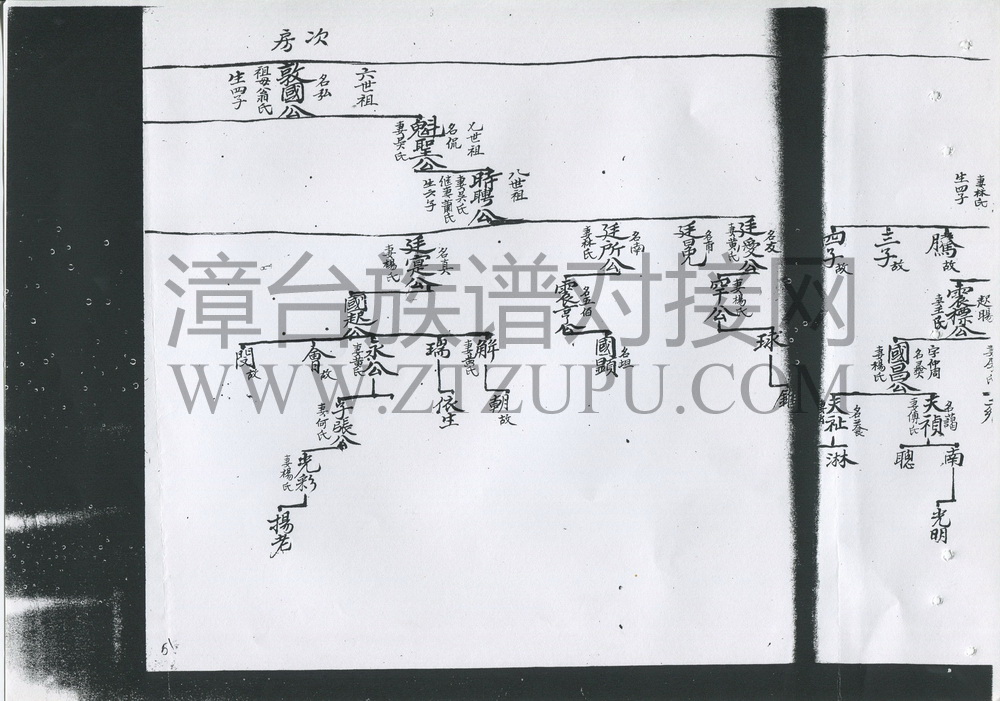 次房
六世祖
名弘
敦國公
祖母翁氏
生四子
七世祖
名侃
魁聖公
妻吳氏
八世祖
時聘公
妻吳氏
继妻蕭氏
生六子
名友
廷愛公
妻黃氏
名甫
廷昂
名南
廷所公
妻林氏
名真
廷寔公
妻楊氏
宇公
妻楊氏
球
名五伯
震亨公
國顯
名坦
國起公
解
妻黃氏
朝
故
瑞
依生
永公
妻黃氏
會
故
閔
故
字張公
妻何氏
光彩
妻楊氏
揚老
妻林氏
生四子
騰
故
三子
故
四子
故
起賜
震標公
妻王氏
字仲周
名葵
國昌公
妻楊氏
名藹
夫禎
妻傅氏
夫祉
南
聰
淋
光明
51
漳台族谱对接网
WWW.ZTZUPU.COM